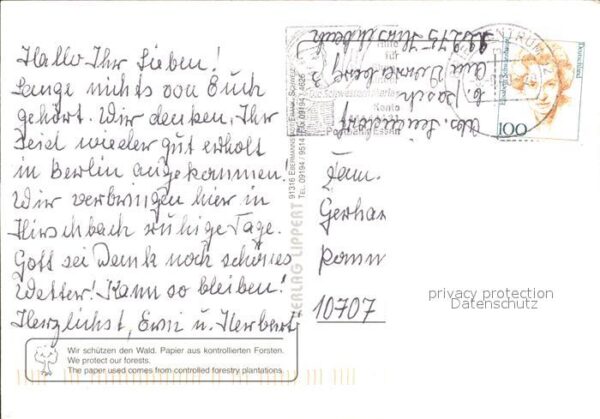 Hallo Ihr Lieben!
Lange nichts von Euch
gehört. Wir denken, Ihr
seid wieder gut erholt
in Berlin angekommen.
Wir verbringen hier in
Hirschbach ruhige Tage.
Gott sei Dank noch schönes
Wetter! Kann so bleiben!
Herzlichst, Erni u. Herbert
Wir schützen den Wald. Papier aus kontrollierten Forsten.
We protect our forests.
The paper used comes from controlled forestry plantations.
VERLAG LIPPERT
91316 EBERMANNSTADT
TEL. 09194 / 9514
Hirschbach
für
Konto
Essen
ZENTRUM
Deutschland
100
Fam.
Gerhar
10707
privacy protection
Datenschutz